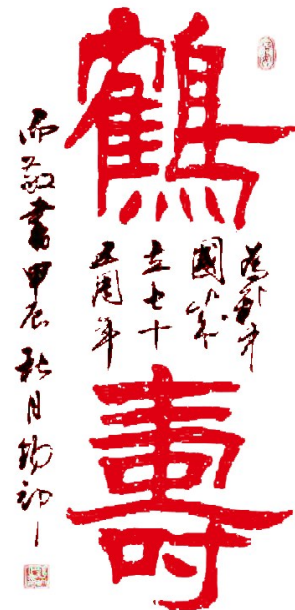 鶴壽
为新中
國成
立七十
五周年
而敬書甲辰秋月